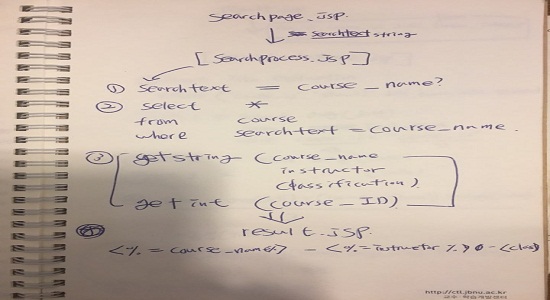 searchpage.jsp.
↓ searchtext string
[ searchprocess.jsp ]
① searchtext = course_name?
② select *
from course
where searchtext = course_name.
③ getstring (course_name
instructor
classification)
getint (course_ID)
④ result.jsp.
<%= course_name%> - <%=instructor%> - <class
http://ctl.jbnu.ac.kr